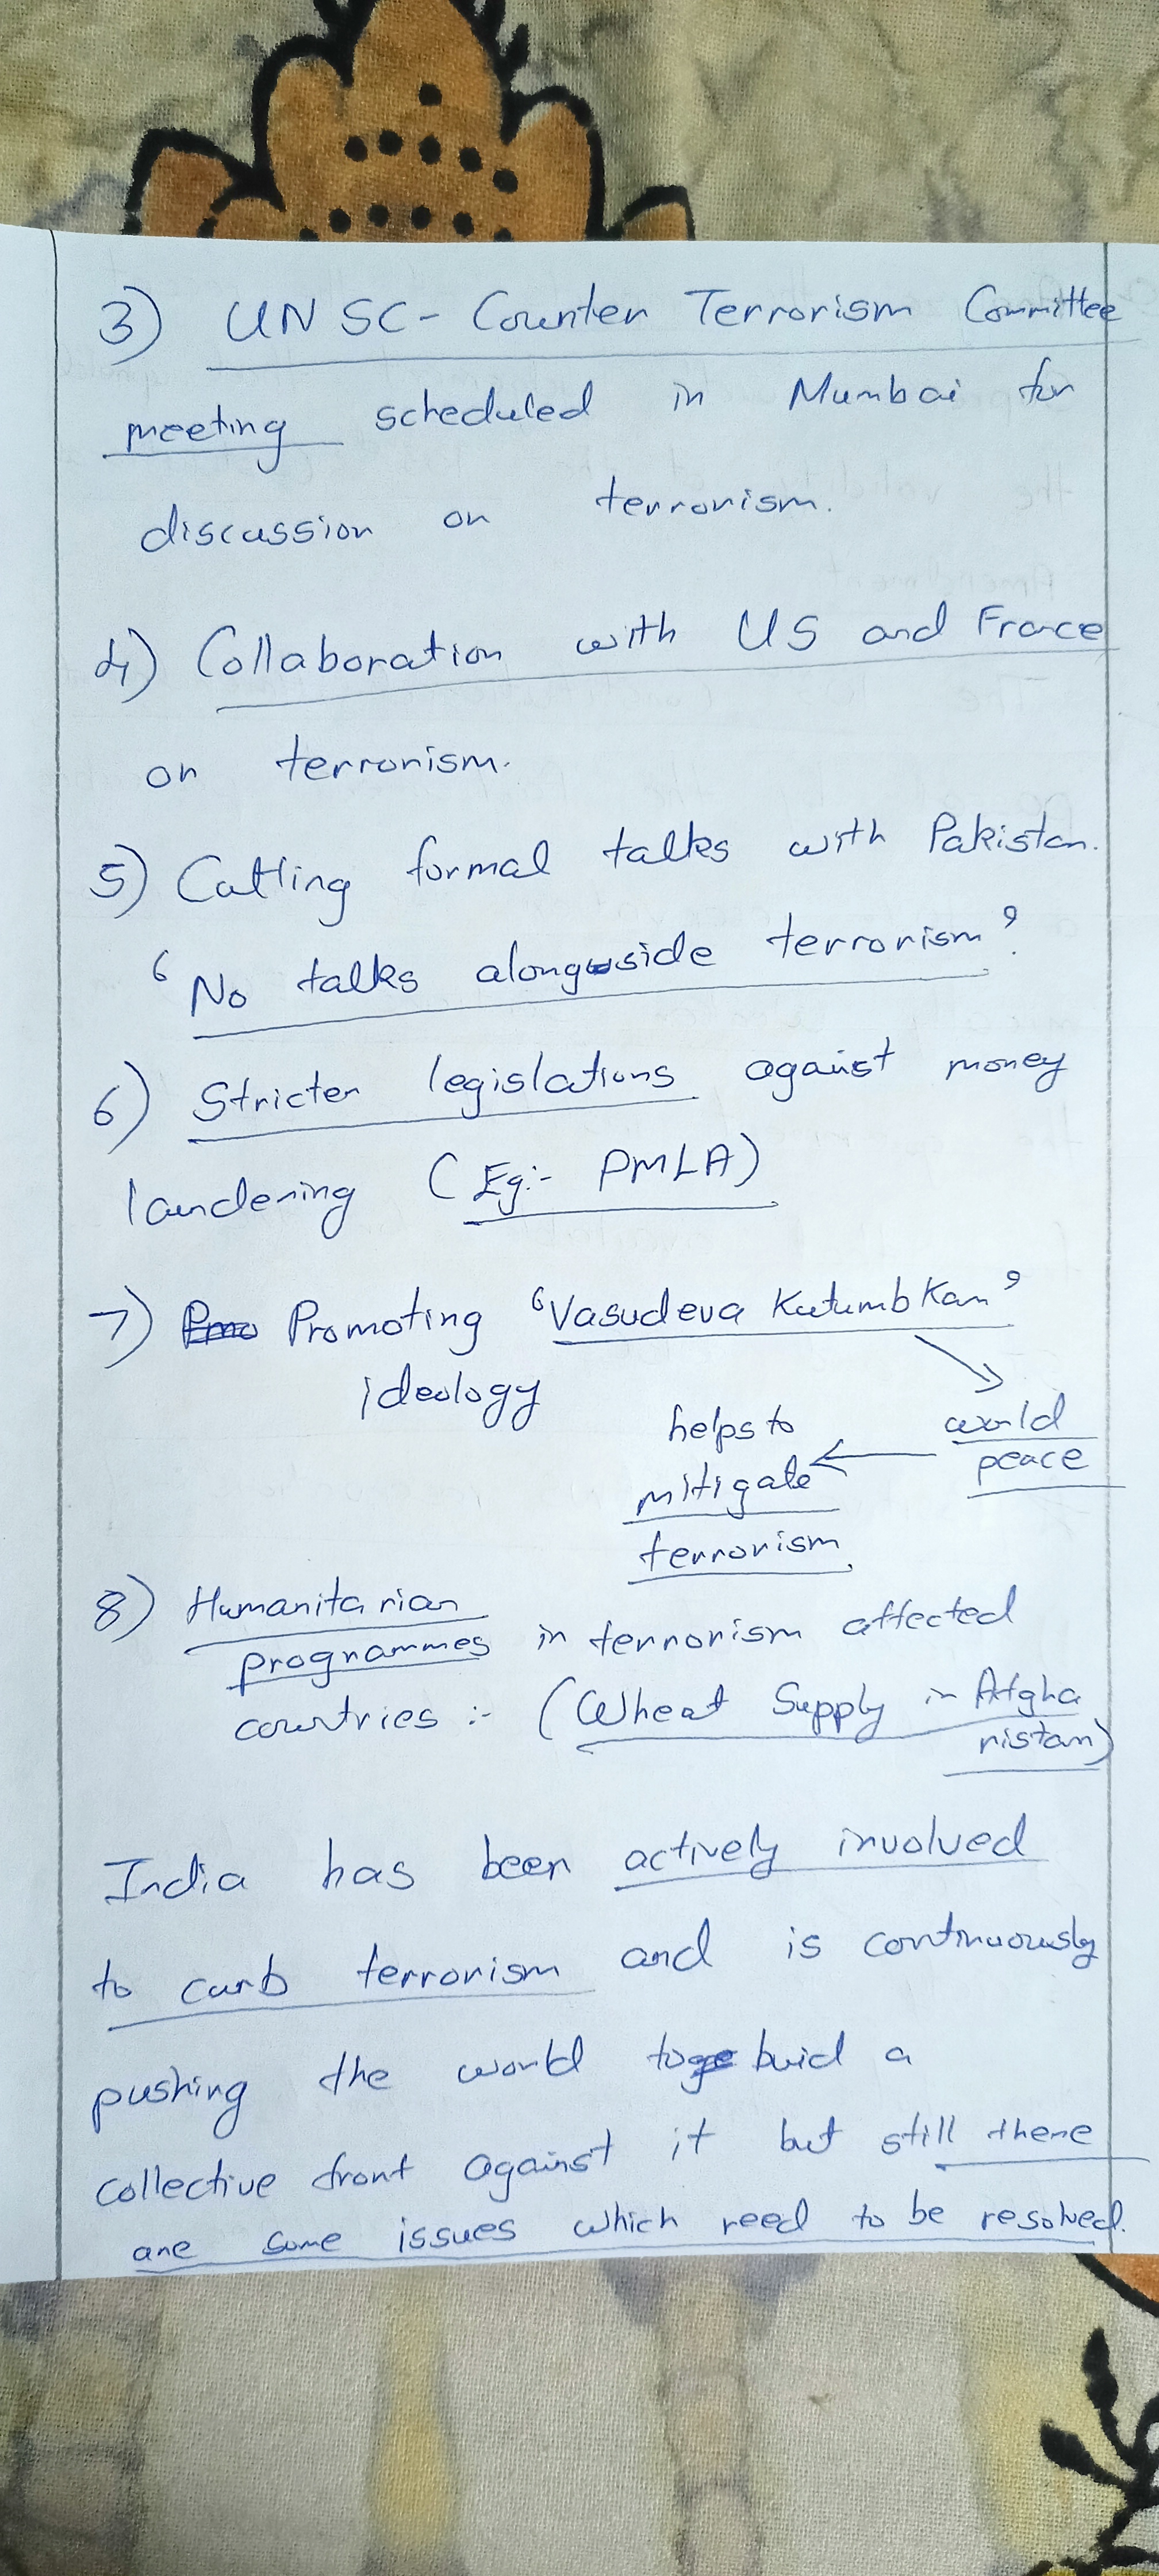 3) UNSC- Counter Terrorism Committee
meeting scheduled in Mumbai for
discussion on terrorism.
4) Collaboration with US and France
on terrorism.
5) Cutting formal talks with Pakistan.
'No talks alongside terrorism'.
6) Stricter legislations against money
laundering (Eg:- PMLA)
7) Promoting 'Vasudeva Kutumbkam'
ideology
helps to world
mitigate peace
terrorism.
8) Humanitarian
programmes in terrorism affected
countries :- (Wheat Supply in Afgha
nistan)
India has been actively involved
to curb terrorism and is continuously
pushing the world to buid a
collective front against it but still there
are some issues which need to be resolved.